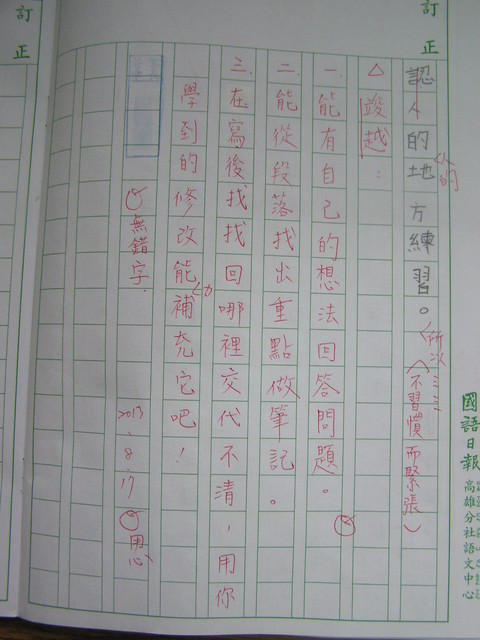 訂正
訂正
認人的地方練習。(不習慣而緊張)
人的
所以
△竣越:
一、能有自己的想法回答問題。
二、能從段落找出重點做筆記。
三、在寫後找找回哪裡交代不清,用你
學到的修改能補充它吧!
力
無錯字.
2013.8.17 用心
國語日報
高雄分社語文中心